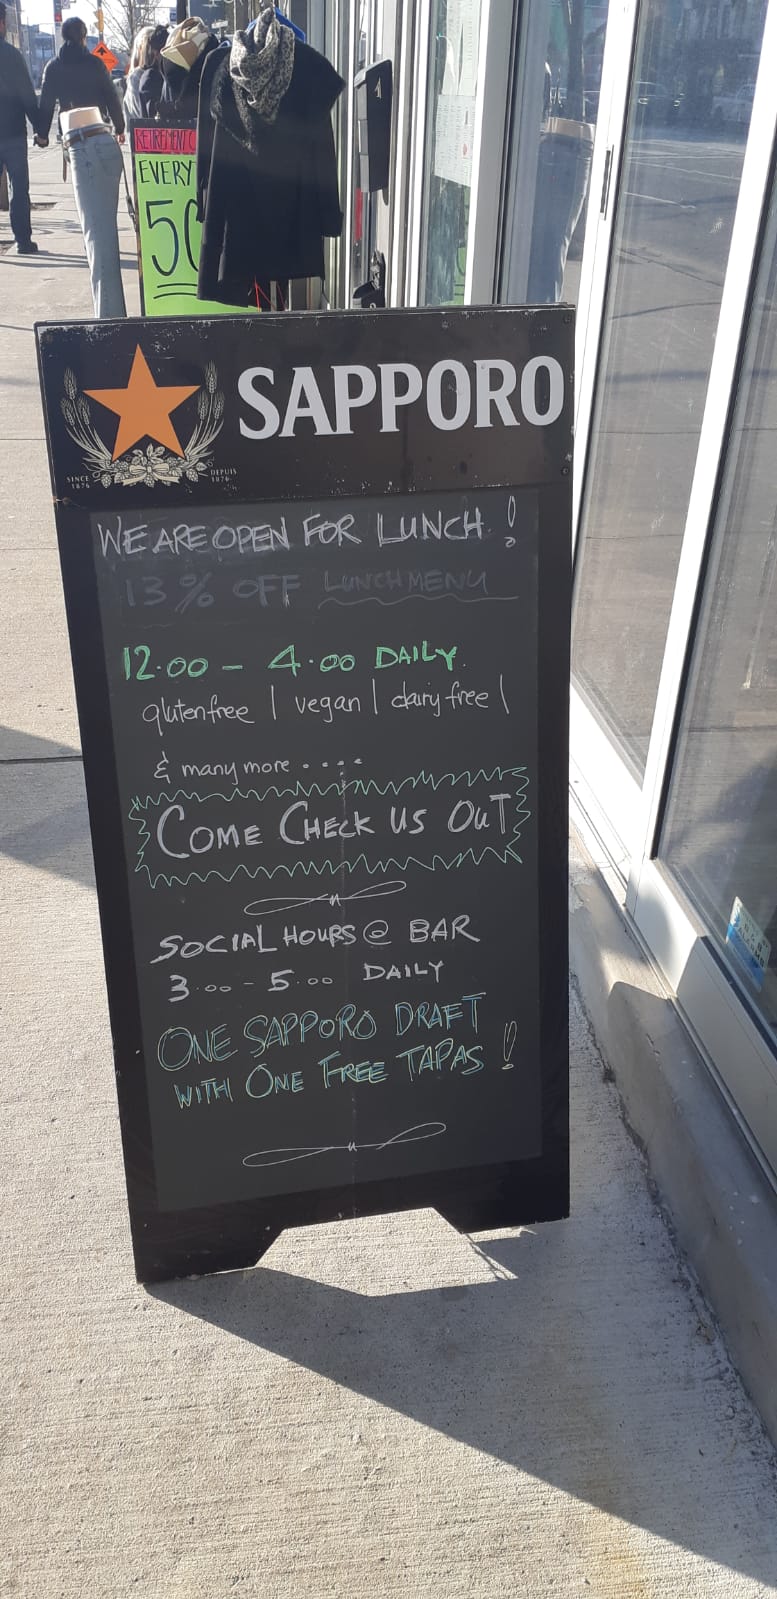 RETIREMENT
EVERY
50
SAPPORO
SINCE
1876
DEPUIS
1876
WE ARE OPEN FOR LUNCH !
13% OFF LUNCH MENU
12.00 - 4.00 DAILY.
glutenfree | vegan | dairy free |
& many more ....
COME CHECK US OUT
SOCIAL HOURS @ BAR
3.00 - 5.00 DAILY
ONE SAPPORO DRAFT
WITH ONE FREE TAPAS !